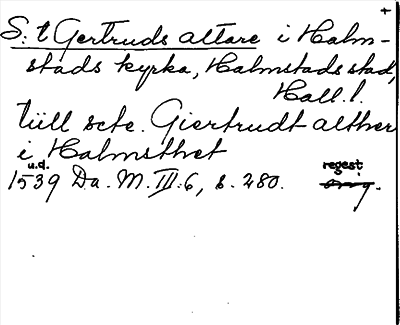 +
S:t Gertruds altare i Halm-
stads kyrka, Halmstads stad,
Hall. l.
tüll scte. Giertrudt alther
i Halmsthet
u.d. regest
1539 Da. M. III:6, s. 280.